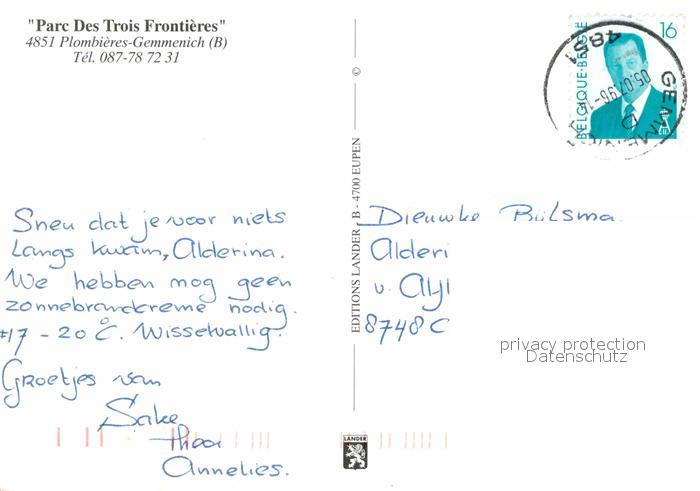 "Parc Des Trois Frontières"
4851 Plombières-Gemmenich (B)
Tél. 087-78 72 31
Sneu dat je voor niets
langs kwam, Alderina.
We hebben nog geen
zonnebrandcreme nodig.
±17 - 20°C. Wisselvallig.
Groetjes van
Sake
Thea
Annelies.
© EDITIONS LANDER B - 4700 EUPEN
LANDER
BELGIQUE-BELGIË
16
4851
05.07.96-
Dieuwke
Alderi
v.
8748 C
privacy protection
Datenschutz